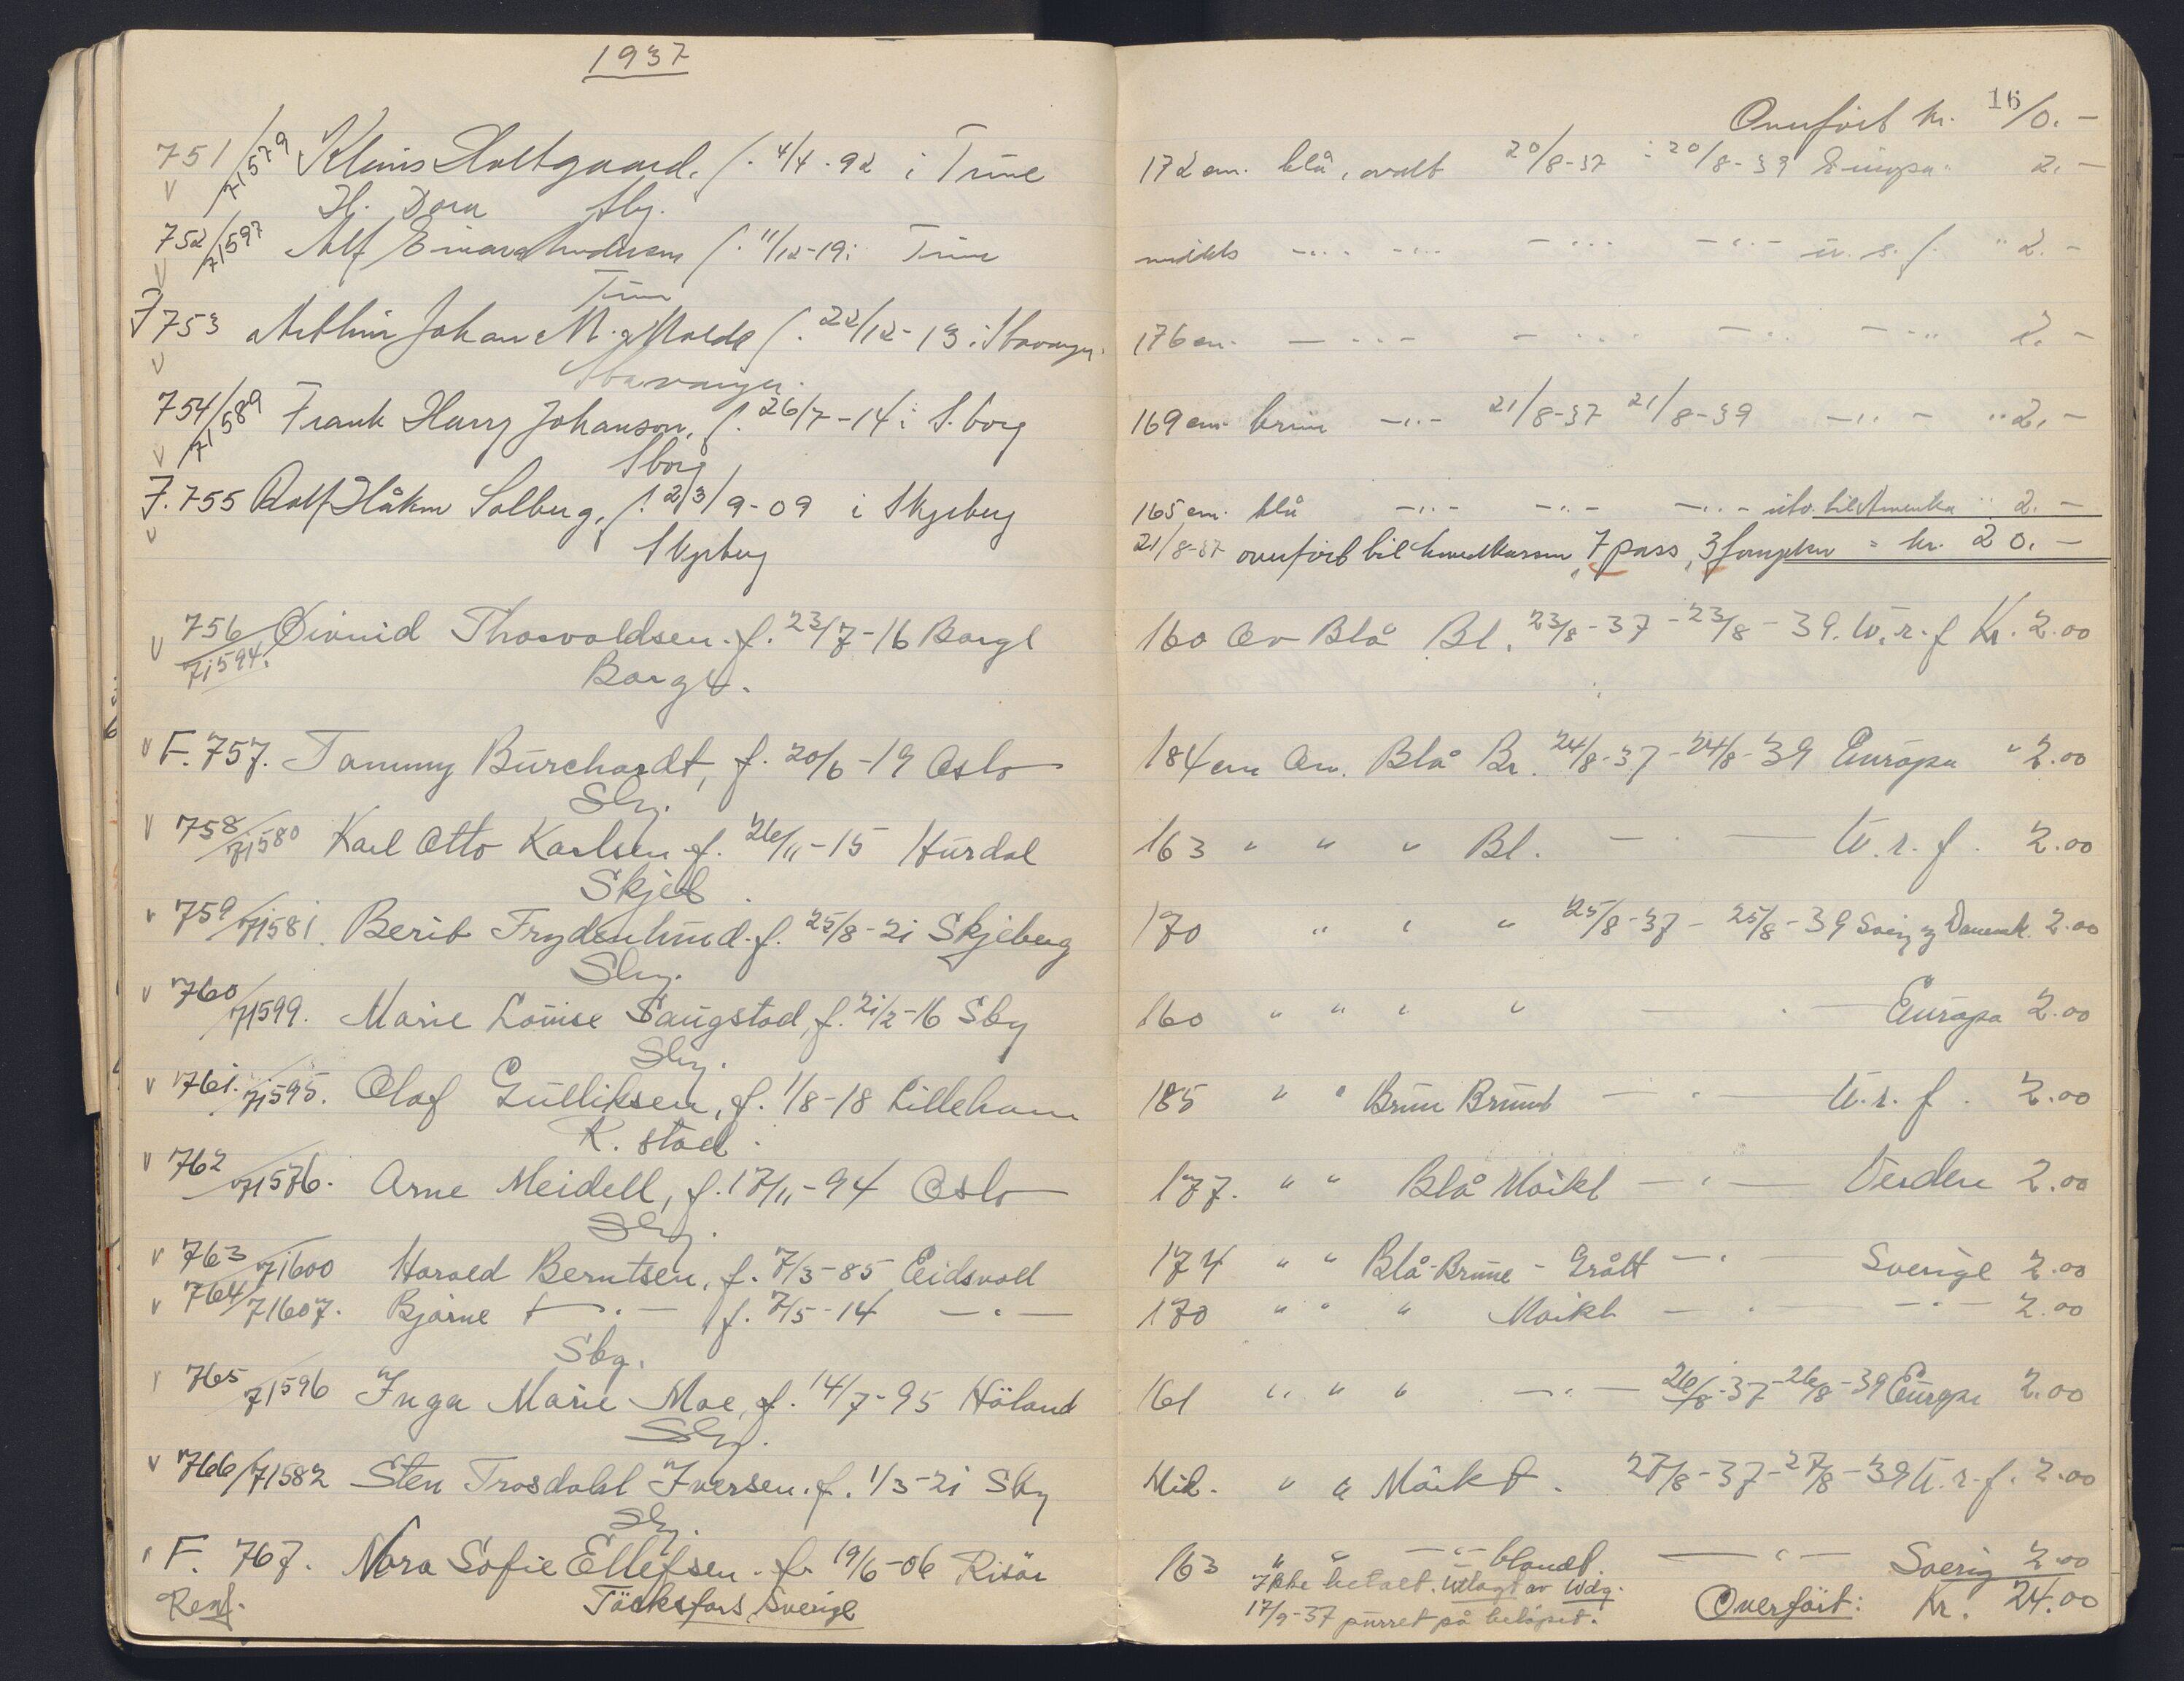 1937
751/71579 Klaus Holtgaard, f. 4/4-92 i Tune
Sbg.
752/71597 Alf Einar f. 11/12-19 i Tune
Tune
F 753 Arthur Johan M. f. 22/12-13 i Stavanger
Stavanger.
754/71589 Frank Harry Johanson, f. 26/7-14 i S.borg
Sborg
F. 755 Rolf Håkon Solberg, f. 23/9-09 i Skjeberg
Skjeberg
756/71594. Øivind Thorvaldsen. f. 23/7-16 Borge
Borge.
F. 757. Tammy Burchardt, f. 20/6-19 Oslo
Sbg.
758/71580 Karl Otto Karlsen f. 26/11-15 Hurdal
Skjeb.
759/71581. Berit Frydenlund. f. 25/8-21 Skjeberg
Sbg.
760/71599. Marie Louise Saugstad, f. 21/2-16 Sbg
Sbg.
761./71595. Olaf Gulliksen, f. 1/8-18 Lilleham
K. stad.
762/71576. Arne Meidell, f. 17/11-94 Oslo
Sbg.
763/71600 Harald Berntsen, f. 7/3-85 Eidsvoll
764/71607. Bjarne — " — f. 7/5-14 — " —
Sbg.
765/71596 Inga Marie Moe, f. 14/7-95 Höland
Sbg.
766/71582 Sten Trosdahl Iversen. f. 1/3-21 Sbg
Sbg.
F. 767. Nora Sofie Ellefsen. f. 19/6-06 Risör
Töcksfors, Sverige
16
Overført kr. 10.-
172 cm. blå, ovalt 20/8-37 - 20/8-39 Europa. 2.-
middels —"— —"— —"— —"— u. r. f. " 2.-
176 cm. —"— —"— —"— —"— 2.-
169 cm. brun —"— 21/8-37 21/8-39 —"— " 2.-
165 cm. blå —"— —"— —"— utv. til Amerika " 2.-
21/8-37 overført til 7 pass, 3 = kr. 20.-
160 Ov Blå Bl. 23/8-37 - 23/8-39. U. r. f Kr. 2.00
184 cm Ov. Blå Br. 24/8-37 - 24/8-39 Europa " 2.00
163 " " " Bl. — " — U. r. f. 2.00
170 " " " 25/8-37 - 25/8-39 Sverig og Danmark. 2.00
160 " " " " — " — Europa 2.00
185 " " Brun Brunt — " — U. r. f. 2.00
177. " " Blå Mörkt — " — Verden 2.00
174 " " Blå-Brune - Grått — " — Sverige 2.00
170 " " " Mörkt — " — — " — 2.00
161 " " " — " — 26/8-37 - 26/8-39 Europa 2.00
Mid. " " Mörkt. 27/8-37 - 27/8-39 U. r. f. 2.00
163 " " — " — blandt. — " — Sverig 2.00
Ikke betalt. Utlagt av Wdg.
17/9-37 purret på belöpet.
Overfört: Kr. 24.00